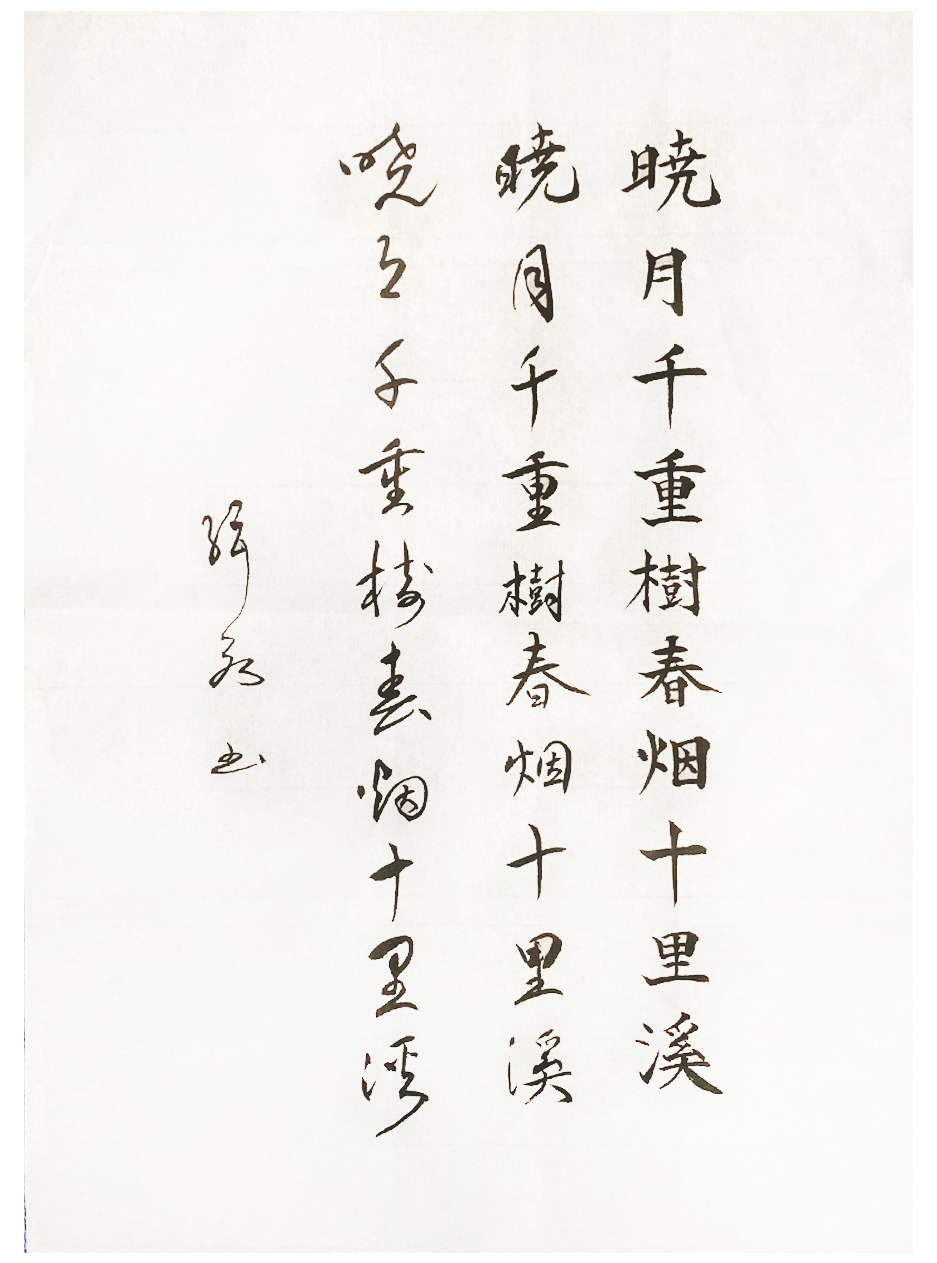 暁月千重樹春烟十里溪
暁月千重樹春烟十里溪
暁月千重樹春烟十里溪
书